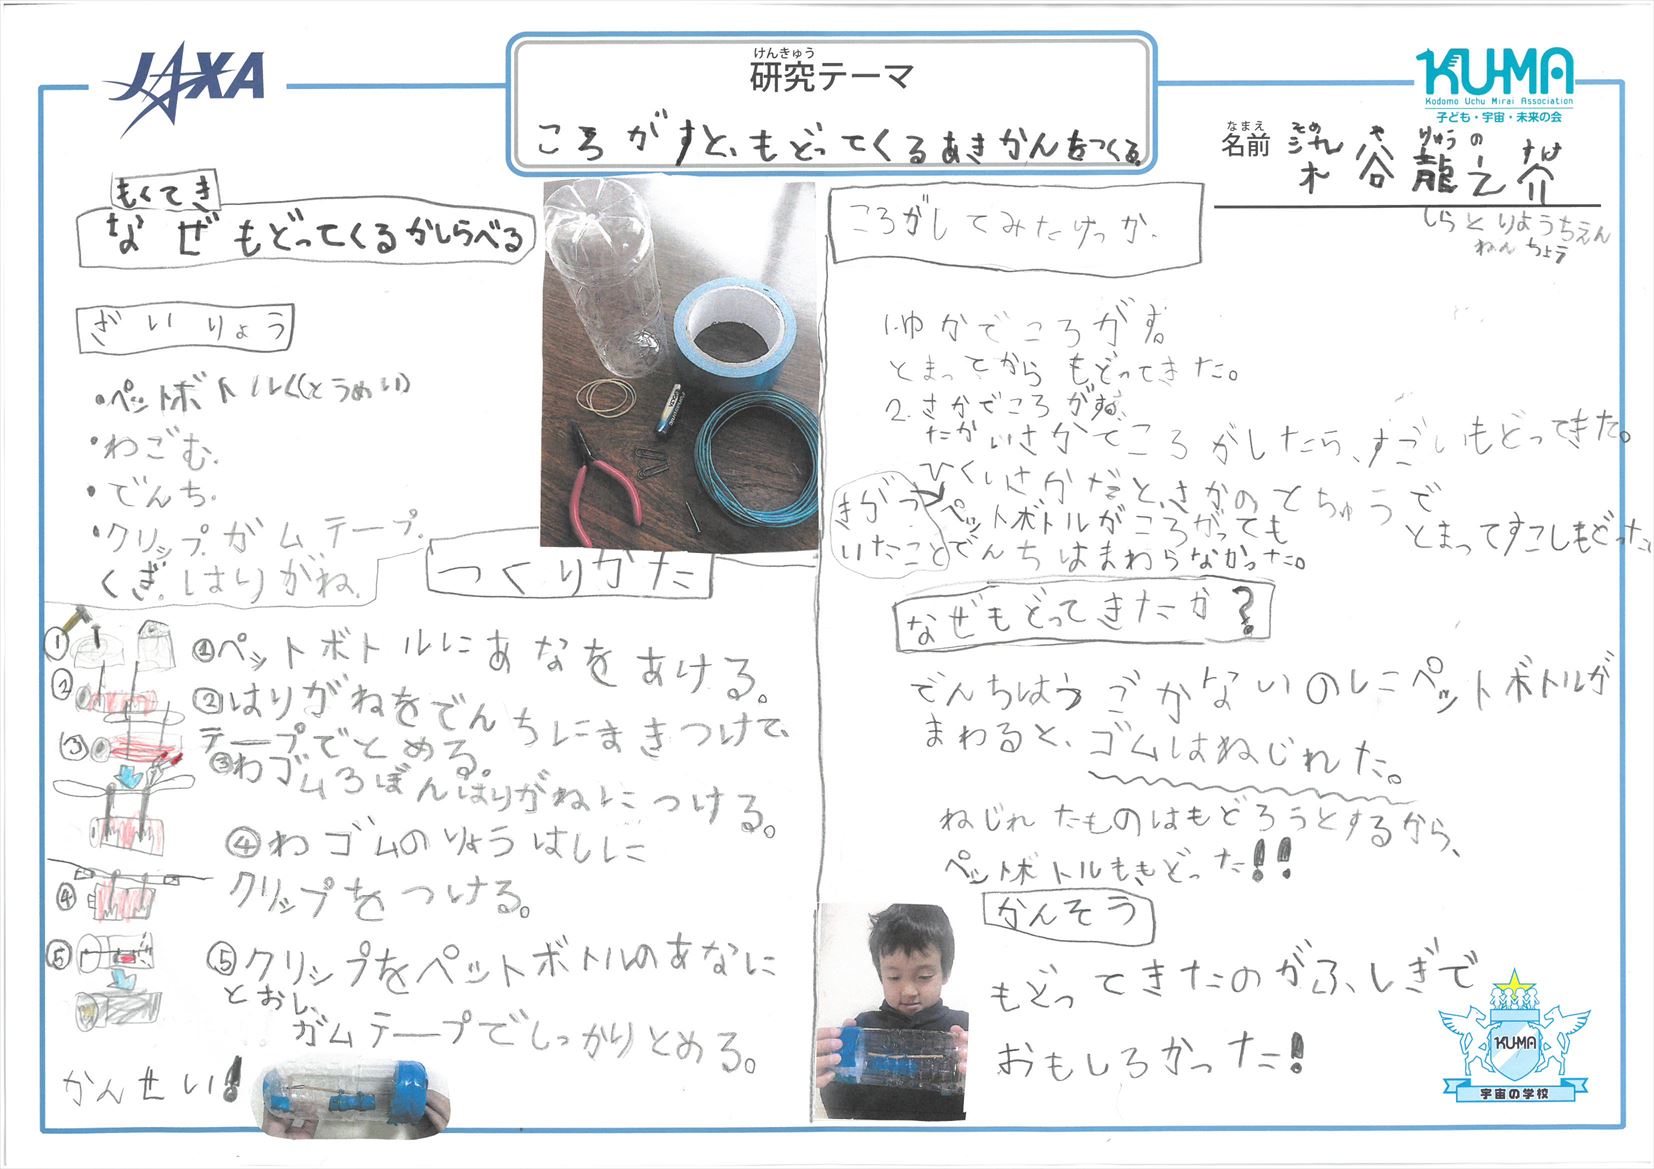 JAXA
けんきゅう
研究テーマ
ころがすと、もどってくるあきかんをつくる。
KU-MA
Kodomo Uchu Mirai Association
子ども・宇宙・未来の会
なまえ
名前
や りゅう の すけ
谷 龍之介
しらとりようちえん
ねんちょう
もくてき
なぜもどってくるかしらべる
ざいりょう
・ペットボトル(とうめい)
・わごむ.
・でんち.
・クリップ.ガムテープ.
くぎ.はりがね.
つくりかた
①
①ペットボトルにあなをあける。
②
②はりがねをでんちにまきつけて、
テープでとめる。
③
③わゴムろぽんはりがねにつける。
④わゴムのりょうはしに
クリップをつける。
④
⑤
⑤クリップをペットボトルのあなに
とおし、
ガムテープでしっかりとめる。
かんせい!
ころがしてみたけっか.
1.ゆかでころがす。
とまってからもどってきた。
2.さかでころがす。
たかいさかでころがしたら、すごいもどってきた。
ひくいさかだと、さかのとちゅうで
とまってすこしもどった
きがつ
いたこと
ペットボトルがころがっても
でんちはまわらなかった。
なぜもどってきたか?
でんちはうごかないのにペットボトルが
まわると、ゴムはねじれた。
ねじれたものはもどろうとするから、
ペットボトルももどった!!
かんそう
もどってきたのがふしぎで
おもしろかった!
KU-MA
宇宙の学校